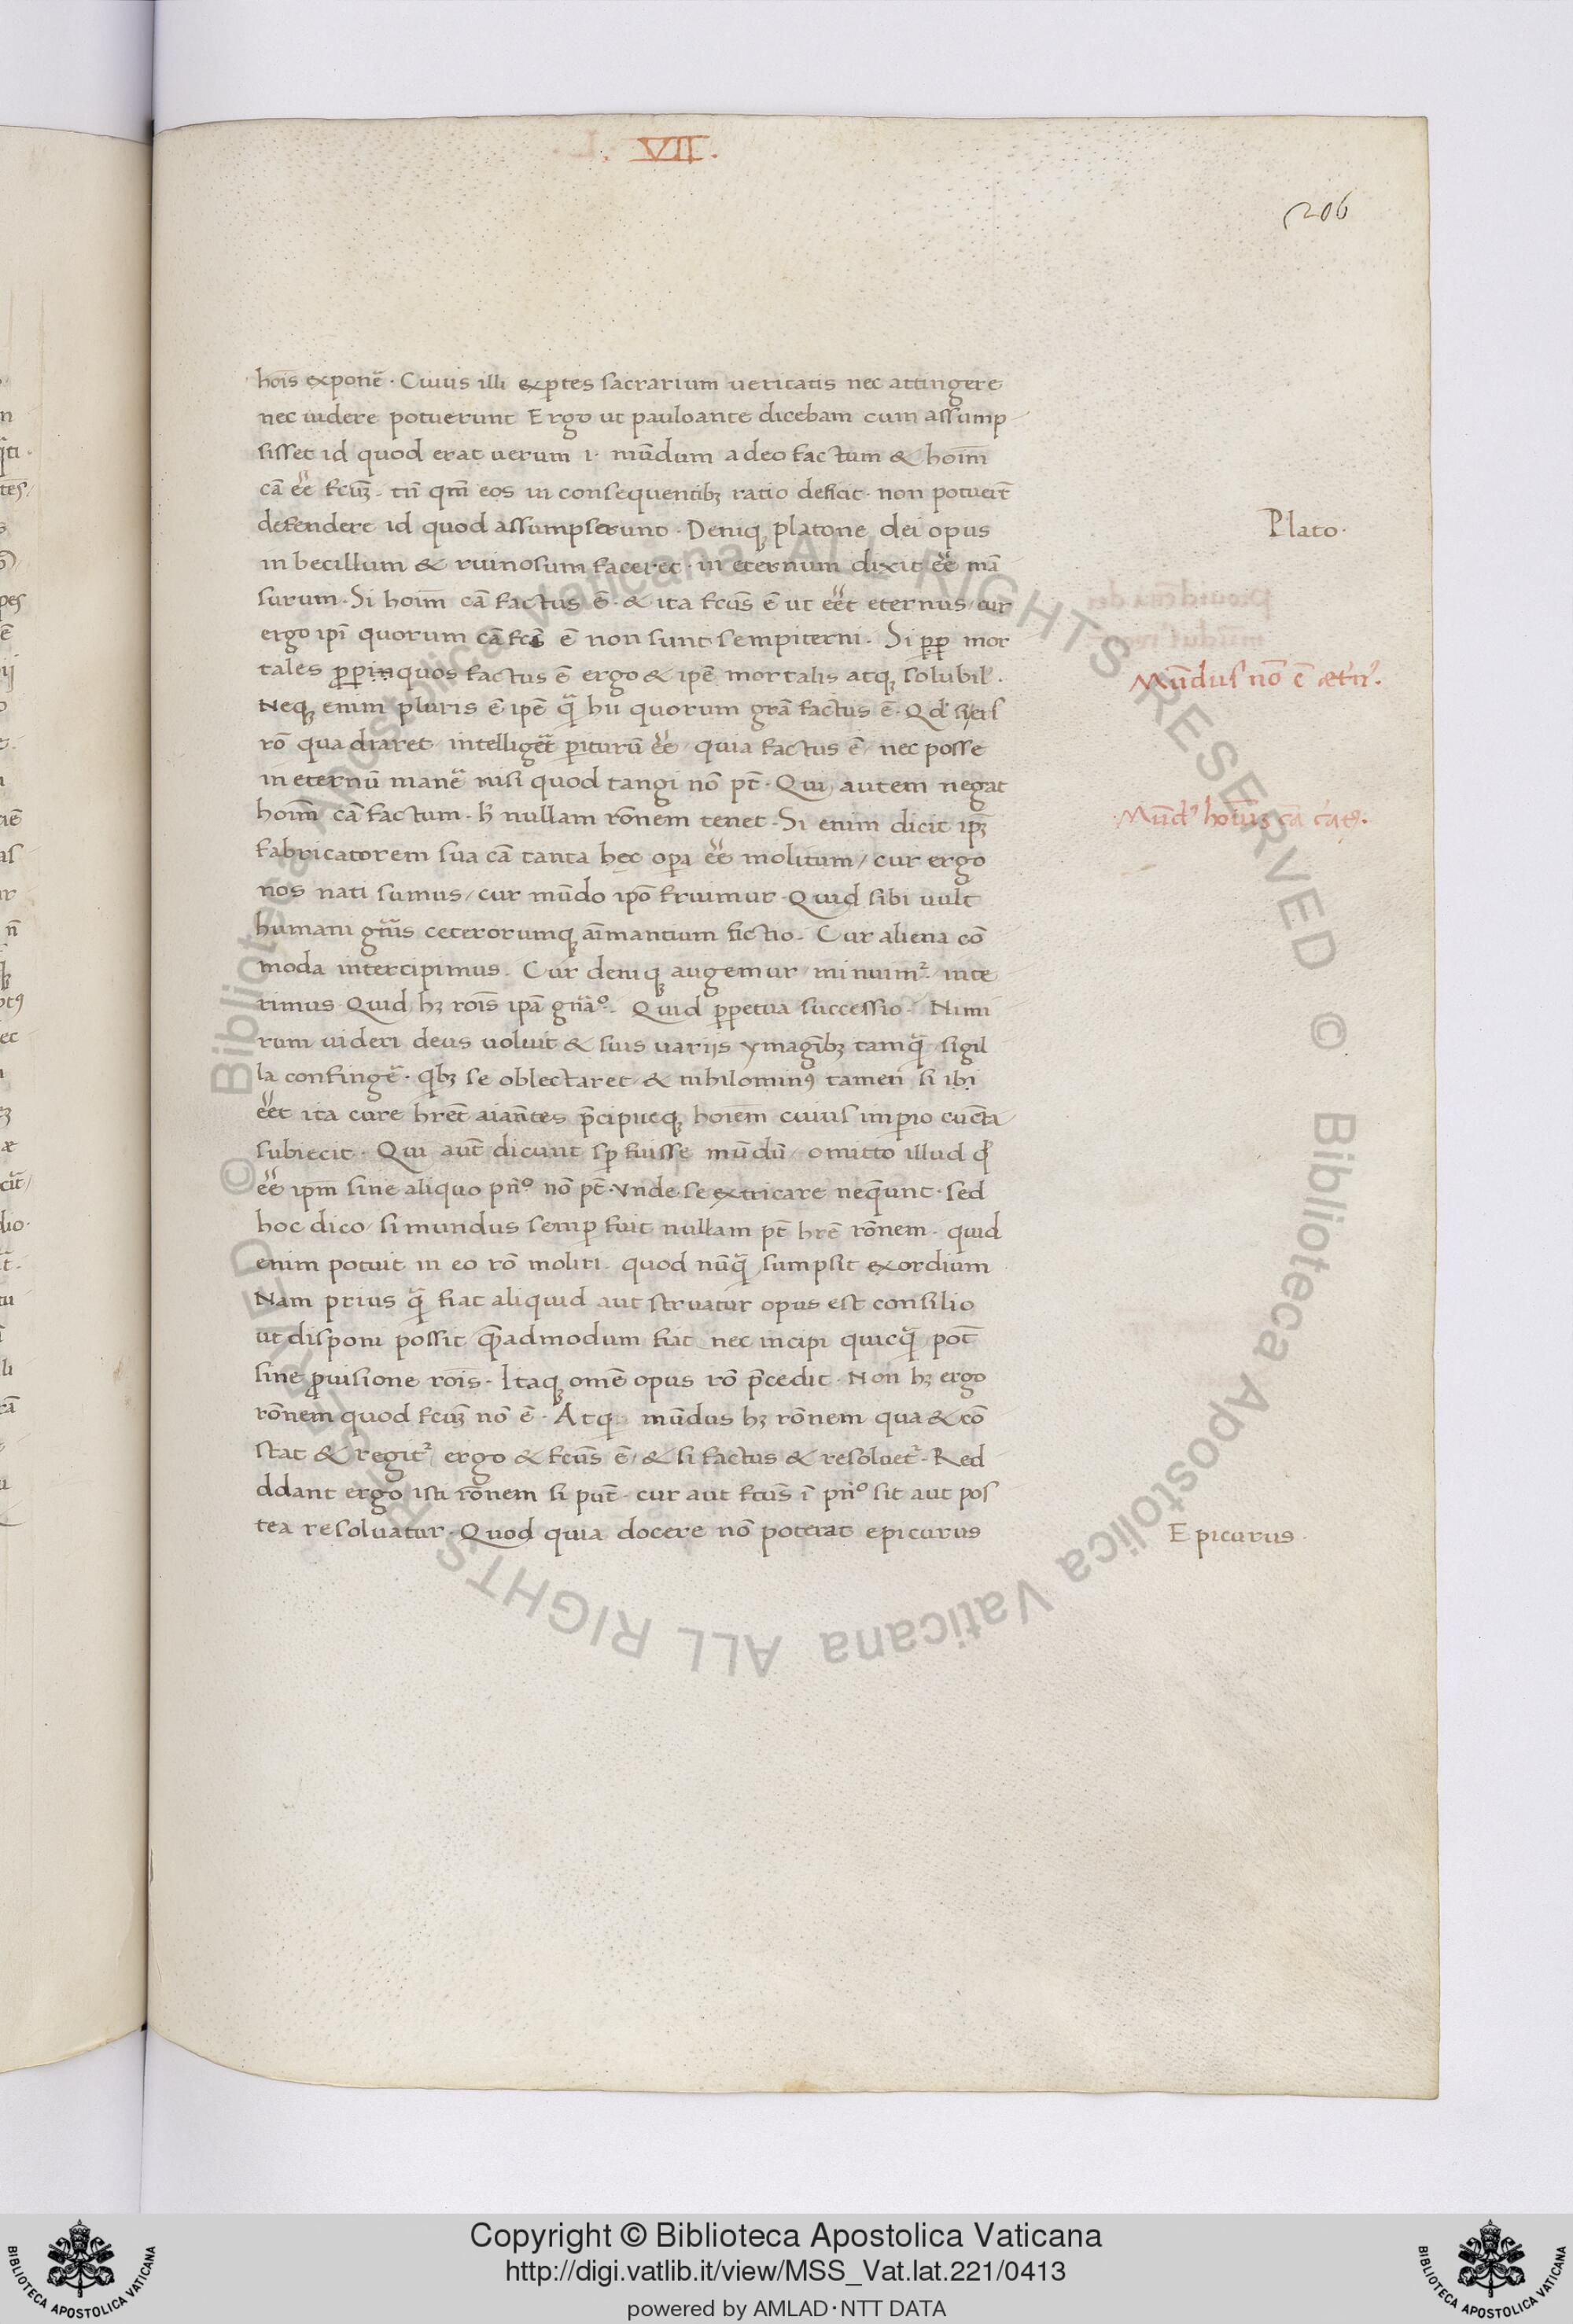 L. VII.
206
hoı̄s exponē̆ · Cuius illi exp̱tes sacrarium ueritatis nec attingere
nec uidere potuerunt Ergo ut pauloante dicebam cum assump
sisset id quod erat uerum ı· mūdum a deo factum & hoım̄
cā ēe fcūꝫ · tn̄ qm̄ eos in consequentibꝫ ratio deficit · non potuer̄t
defendere id quod assumpserunt · Deniqꝫ platone dei opus
in becillum & ruinosum faceret · in eternum dixit ēe mā
surum · Si hoım̄ cā factus ē · & ita fcūs ē ut ēet eternus / cur
ergo ipı̄ quorum cā fcs̄ ē non sunt sempiterni · Si ꝓp̱ mor
tales ꝓpinquos factus ē ergo & ipē mortalis atqꝫ solubil' ·
Neqꝫ enim pluris ē ipē q̄ hii quorum grā factus ē · Qd' si eis
rō quadraret intelliger̄t p̱iturū ēe / quia factus ē / nec posse
in eternū manē̆ nisi quod tangi nō pt̄ · Qui autem negat
hoım̄ cā factum · h̄ nullam rōnem tenet · Si enim dicit ip̄ꝫ
fabricatorem sua cā tanta hec op̱a ēe molitum / cur ergo
nos nati sumus / cur mūdo ipō fruimur · Quid sibi uult
humani gn̄is ceterorumqꝫ aīmantium fictio · Cur aliena cō
moda intercipimus · Cur deniqꝫ augemur / minuim² / inte
rimus Quid hꝫ roı̄s ipā gn̄aº · Quid p̱petua successio · Nimi
rum uideri deus uoluit & suis uariis ymagı̄bꝫ tamq̄ sigil
la confingē̆ · qı̄bꝫ se oblectaret · & nihilominꝰ tamen si ibi
ēet ita cure hr̄et aıān̄tes p̄cipueqꝫ hoīem cuius imp̱io cūcta
subiecit · Qui aut̄ dicunt sp̱ fuisse mūdū / omitto illud qd̄
ēe ipm̄ sine aliquo pn̄º nō pt̄ · Vnde se extricare neq̄unt · sed
hoc dico / si mundus semp̱ fuit nullam pt̄ hr̄e rōnem · quid
enim potuit in eo rō moliri · quod nūq̄ sumpsit exordium
Nam prius q̄ fiat aliquid aut struatur opus est consilio
ut disponi possit quēadmodum fiat nec incipi quicq̄ pot̄
sine ꝓuisione roı̄s · Itaqꝫ omē opus rō p̄cedit · Non hꝫ ergo
rōnem quod fcūꝫ nō ē · Atq̱ mūdus hꝫ rōnem qua & cō
stat & regit² / ergo & fcūs ē / & si factus & resoluet² · Red
ddant ergo isti rōnem si pn̄t · cur aut fcūs ı̄ pn̄º sit aut pos
tea resoluatur · Quod quia docere nō poterat epicurus
Plato ·
Mūdus nō ē æt'n² .
Epicurus ·
© Biblioteca Apostolica Vaticana ALL RIGHTS RESERVED © Biblioteca Apostolica Vaticana ALL RIGHTS RESERVED
BIBLIOTECA APOSTOLICA VATICANA
Copyright © Biblioteca Apostolica Vaticana
http://digi.vatlib.it/view/MSS_Vat.lat.221/0413
powered by AMLAD·NTT DATA
BIBLIOTECA APOSTOLICA VATICANA